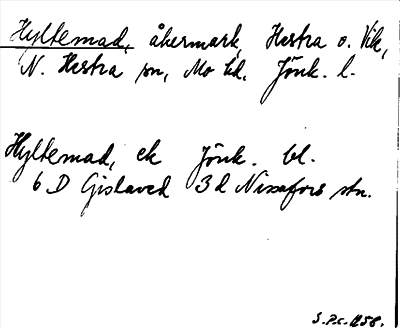 Hyltemad, åkermark, Hestra o. Vik,
N. Hestra sn, Mo hd. Jönk. l.
Hyltemad, ek Jönk. bl.
6 D Gislaved 3 d Nissafors stn.